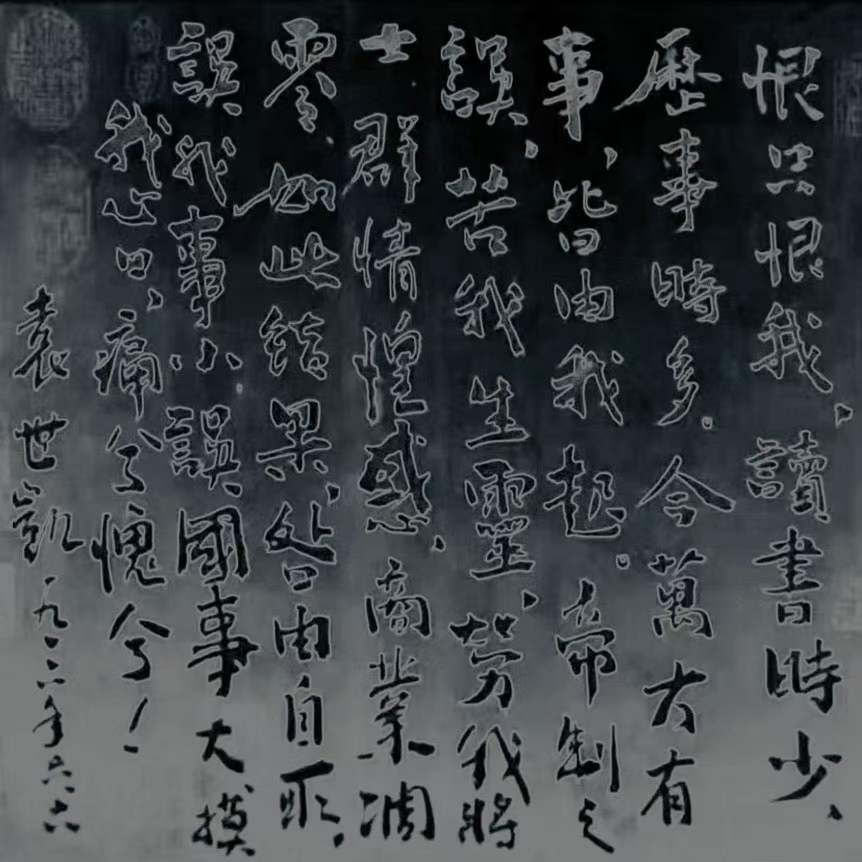 恨只恨我，讀書時少、
歷事時多。今萬方有
事，皆由我起。帝制之
誤，苦我生靈，勞我將
士，群情惶惑，商業凋
零，如此結果，咎由自取，
誤我事小，誤國事大，摸
我心口，痛兮愧兮！
袁世凱 一九一六年六六